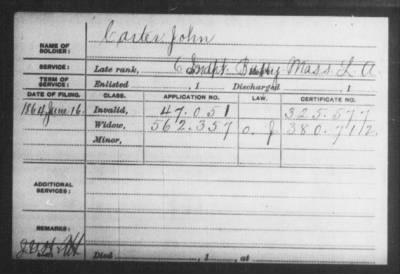 NAME OF SOLDIER: Carter John
SERVICE: Late rank, Batty Mass. L A.
TERM OF SERVICE: Enlisted , 1 Discharged , 1
DATE OF FILING. CLASS. APPLICATION NO. LAW. CERTIFICATE NO.
1864 June 16. Invalid, 47.051 325.577
Widow, 562.357 O. J. 380.712
Minor,
ADDITIONAL SERVICES:
REMARKS:
Died , 1 , at